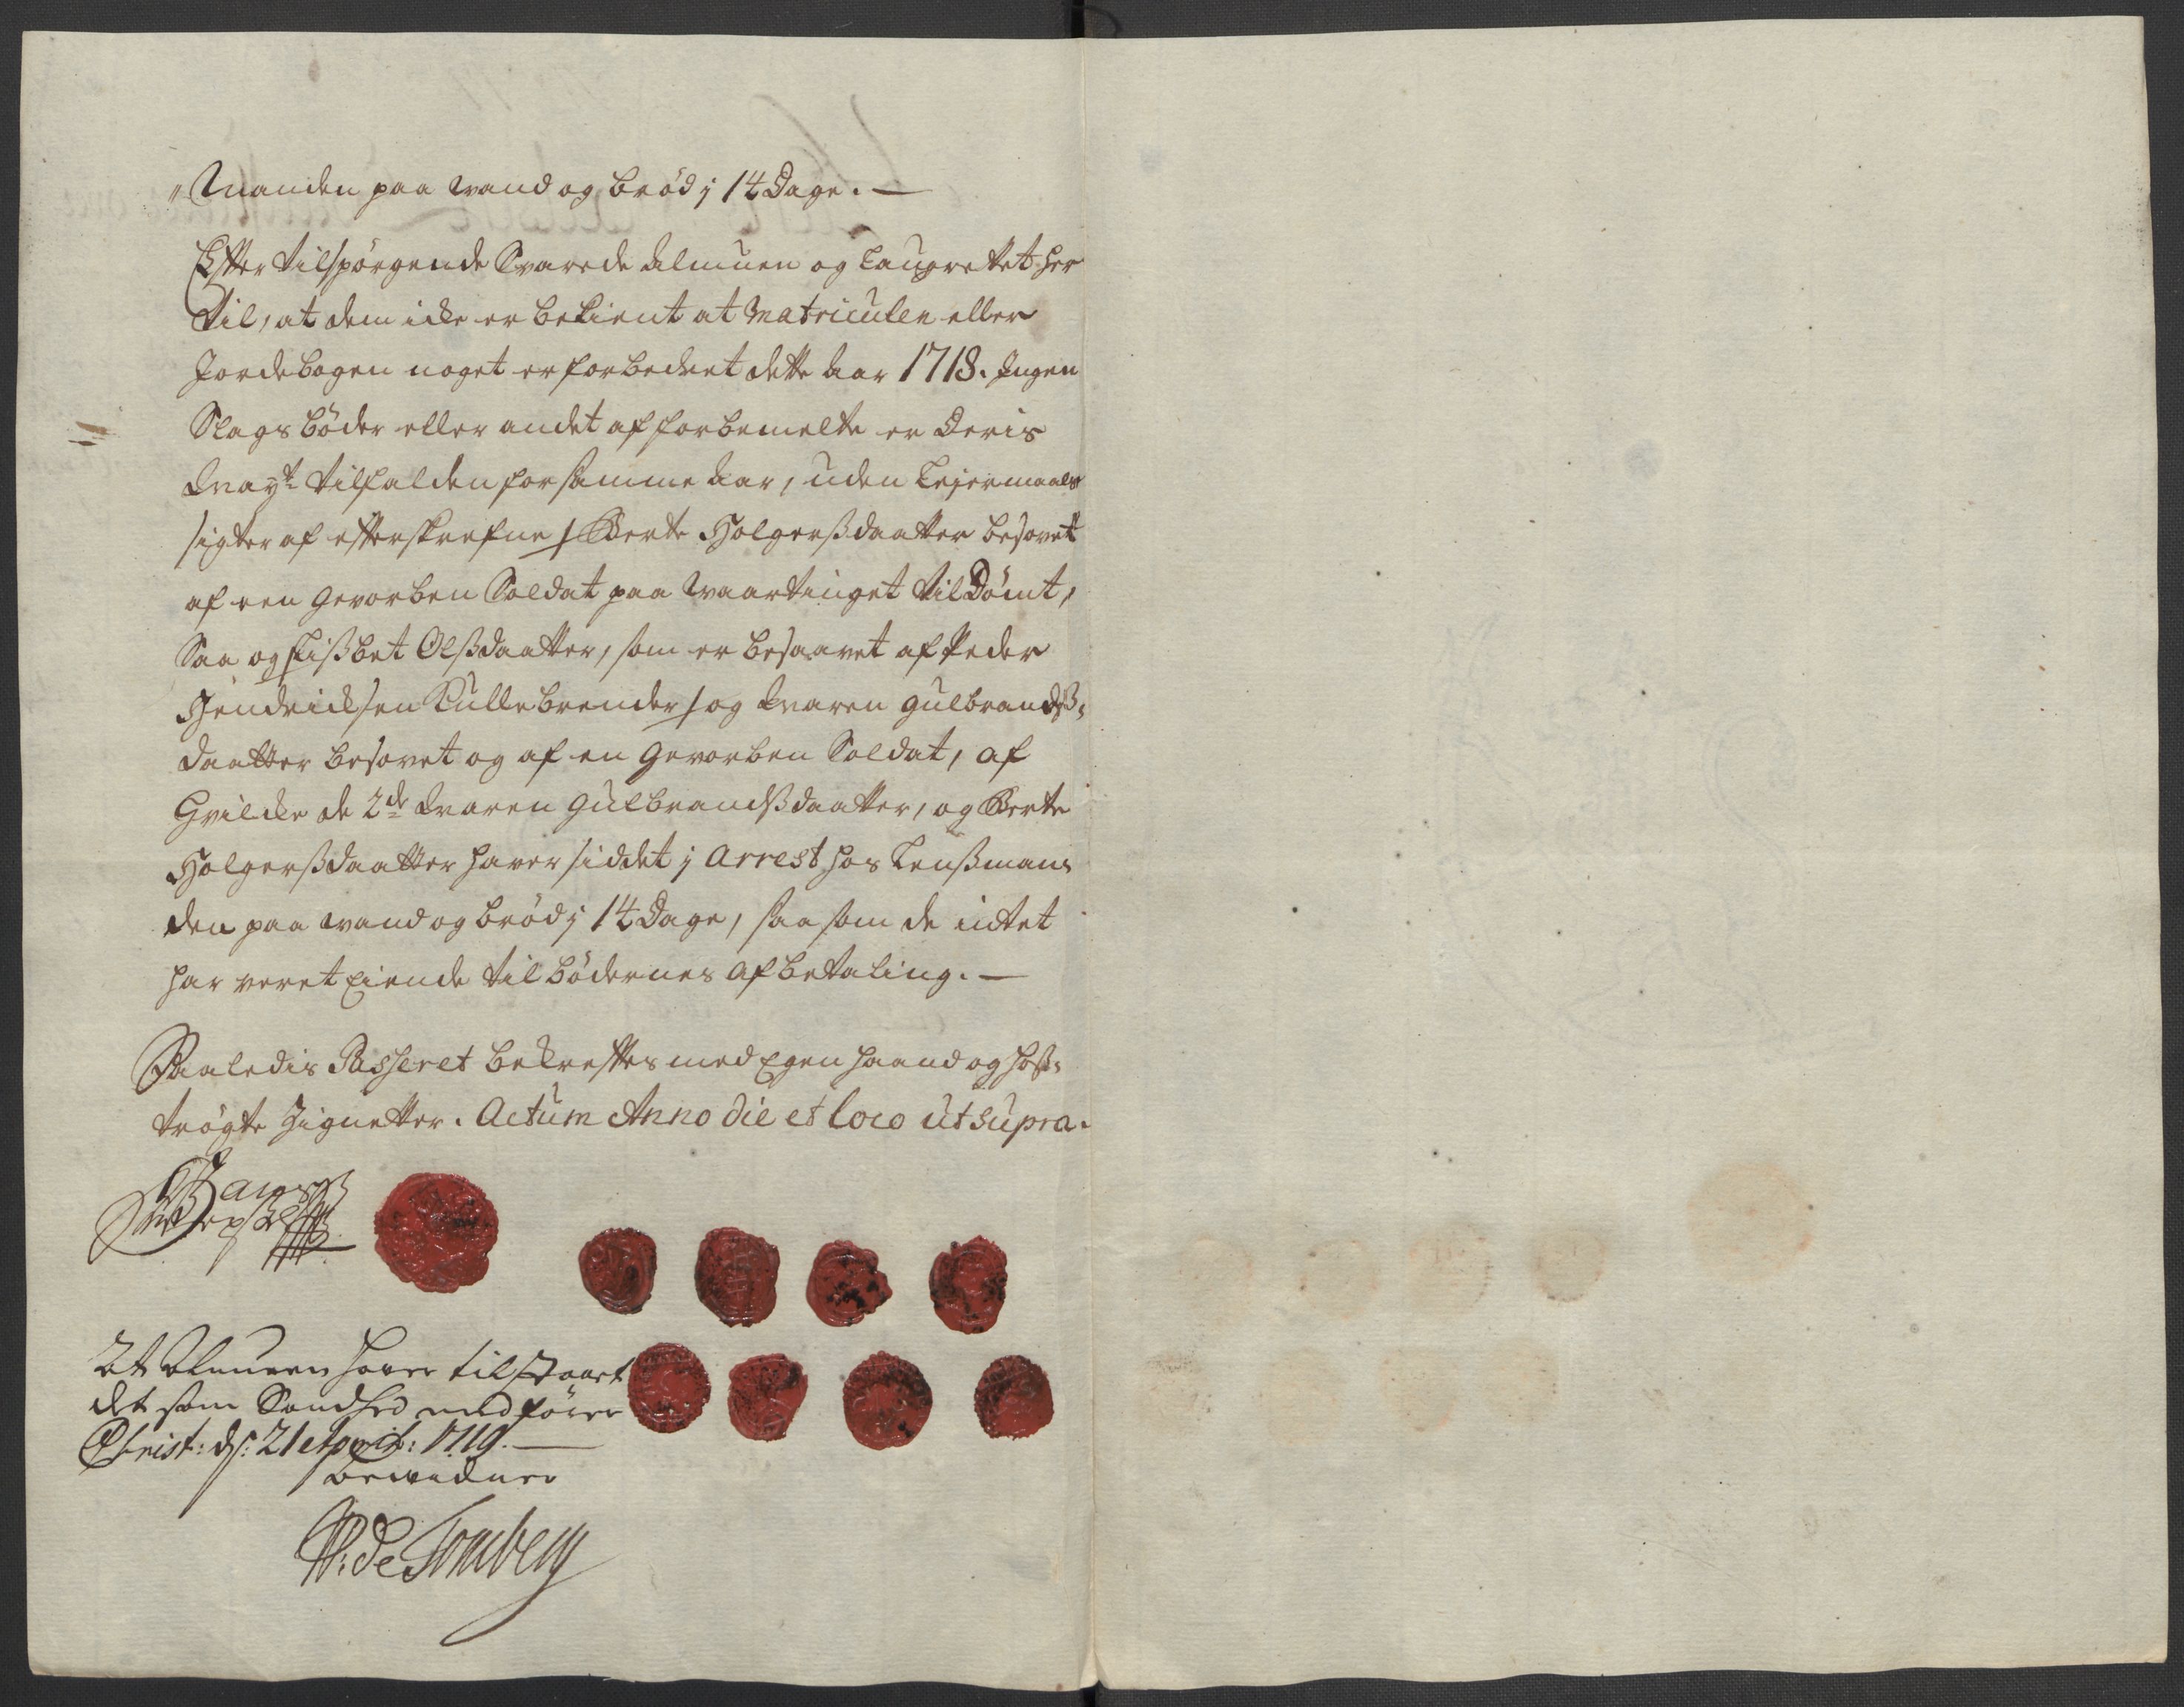 „Manden paa wand og brød j 14 Dage. —
Effter tilspørgende Svarede Almuen og Laugrettet her
til, at dem icke er bekient at Matriculen eller
Jordebogen noget er forbedret dette Aar 1718. Ingen
Slags bøder eller andet af forbemelte er Deris
Mayt: tilfalden for samme Aar, uden Lejermaals
sigter af effterskrefne / Berte Holgerßdaatter besovet
af een Gevorben Soldat paa Waartinget til Dømt,
Saa og Lißbet Olßdaatter, som er besaavet af Peder
Hendricksen Kullebrender / og Maren Gulbrandß-
daatter besovet og af en Gevorben Soldat, af
Hvilcke de 2de Maren Gulbrandßdaatter, og Berte
Holgerßdaatter haver siddet j Arrest hos Lenßman-
den paa wand og brød j 14 Dage, saasom de intet
har veret Eiende til bødernes Afbetaling. —
Saaledis Passeret bekrefftes med Egen haand og hoß-
trøgte Zignetter. Actum Anno die et loco ut supra.
At Almuen haver tilstaaet
det som Sandhed medfører
Christ: ds: 21 April: 1719. —
bevidner
P: de Tonsberg